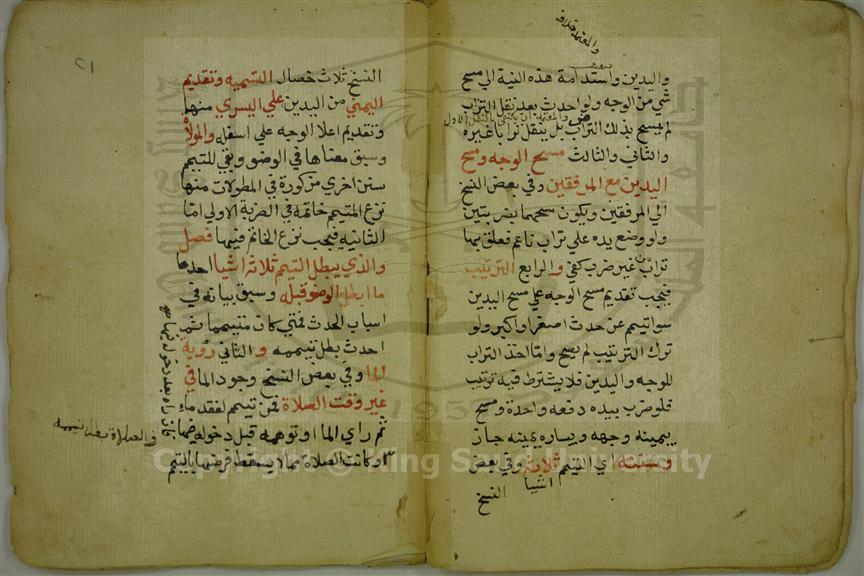 والمعتمد خلافه
واليدين واستدامة هذه النية الي مسح
شي من الوجه ولو احدث بعد نقل التراب
لم يمسح بذلك التراب بل ينقل ترابا غيره
والثاني والثالث مسح الوجه ومسح
اليدين مع المرفقين وفي بعض النسخ
الي المرفقين ويكون مسحهما بضربتين
ولو وضع يده علي تراب ناعم فعلق بها
تراب من غير ضرب كفي والرابع الترتيب
فيجب تقديم مسح الوجه علي مسح اليدين
سوا تيمم عن حدث اصغر او اكبر ولو
ترك الترتيب لم يصح واما اخذ التراب
للوجه واليدين فلا يشترط فيه ترتيب
فلو ضرب بيده دفعه واحدة ومسح
بيمينه وجهه وبيساره يمينه جاز
وسننه اي التيمم ثلاثة وفي بعض
اشيا
النسخ
٢١
النسخ ثلاث خصال التسميه وتقديم
اليمني من اليدين علي اليسري منها
وتقديم اعلا الوجه علي اسفله والموالاه
وسبق معناها في الوضو وبقي للتيمم
سنن اخري مذكورة في المطولات منها
نزع المتيمم خاتمه في الضربة الاولي امّا
الثانيه فيجب نزع الخاتم فيها فصل
والذي يبطل التيمم ثلاثة اشيا احدها
ما ابطل الوضو قبله وسبق بيانه في
اسباب الحدث فمتي كان متيمما ثم
احدث بطل تيممه والثاني روية
الما وفي بعض النسخ وجود الما في
غير وقت الصلاة فمن تيمم لفقد ماء
ثم راي الما او توهمه قبل دخوله
وكانت الصلاة مما لا يسقط فرضها بالتيمم
فان راه بعد دخوله فيها
في الصلاة بطل تيممه
Copyright © King Saud University
1957